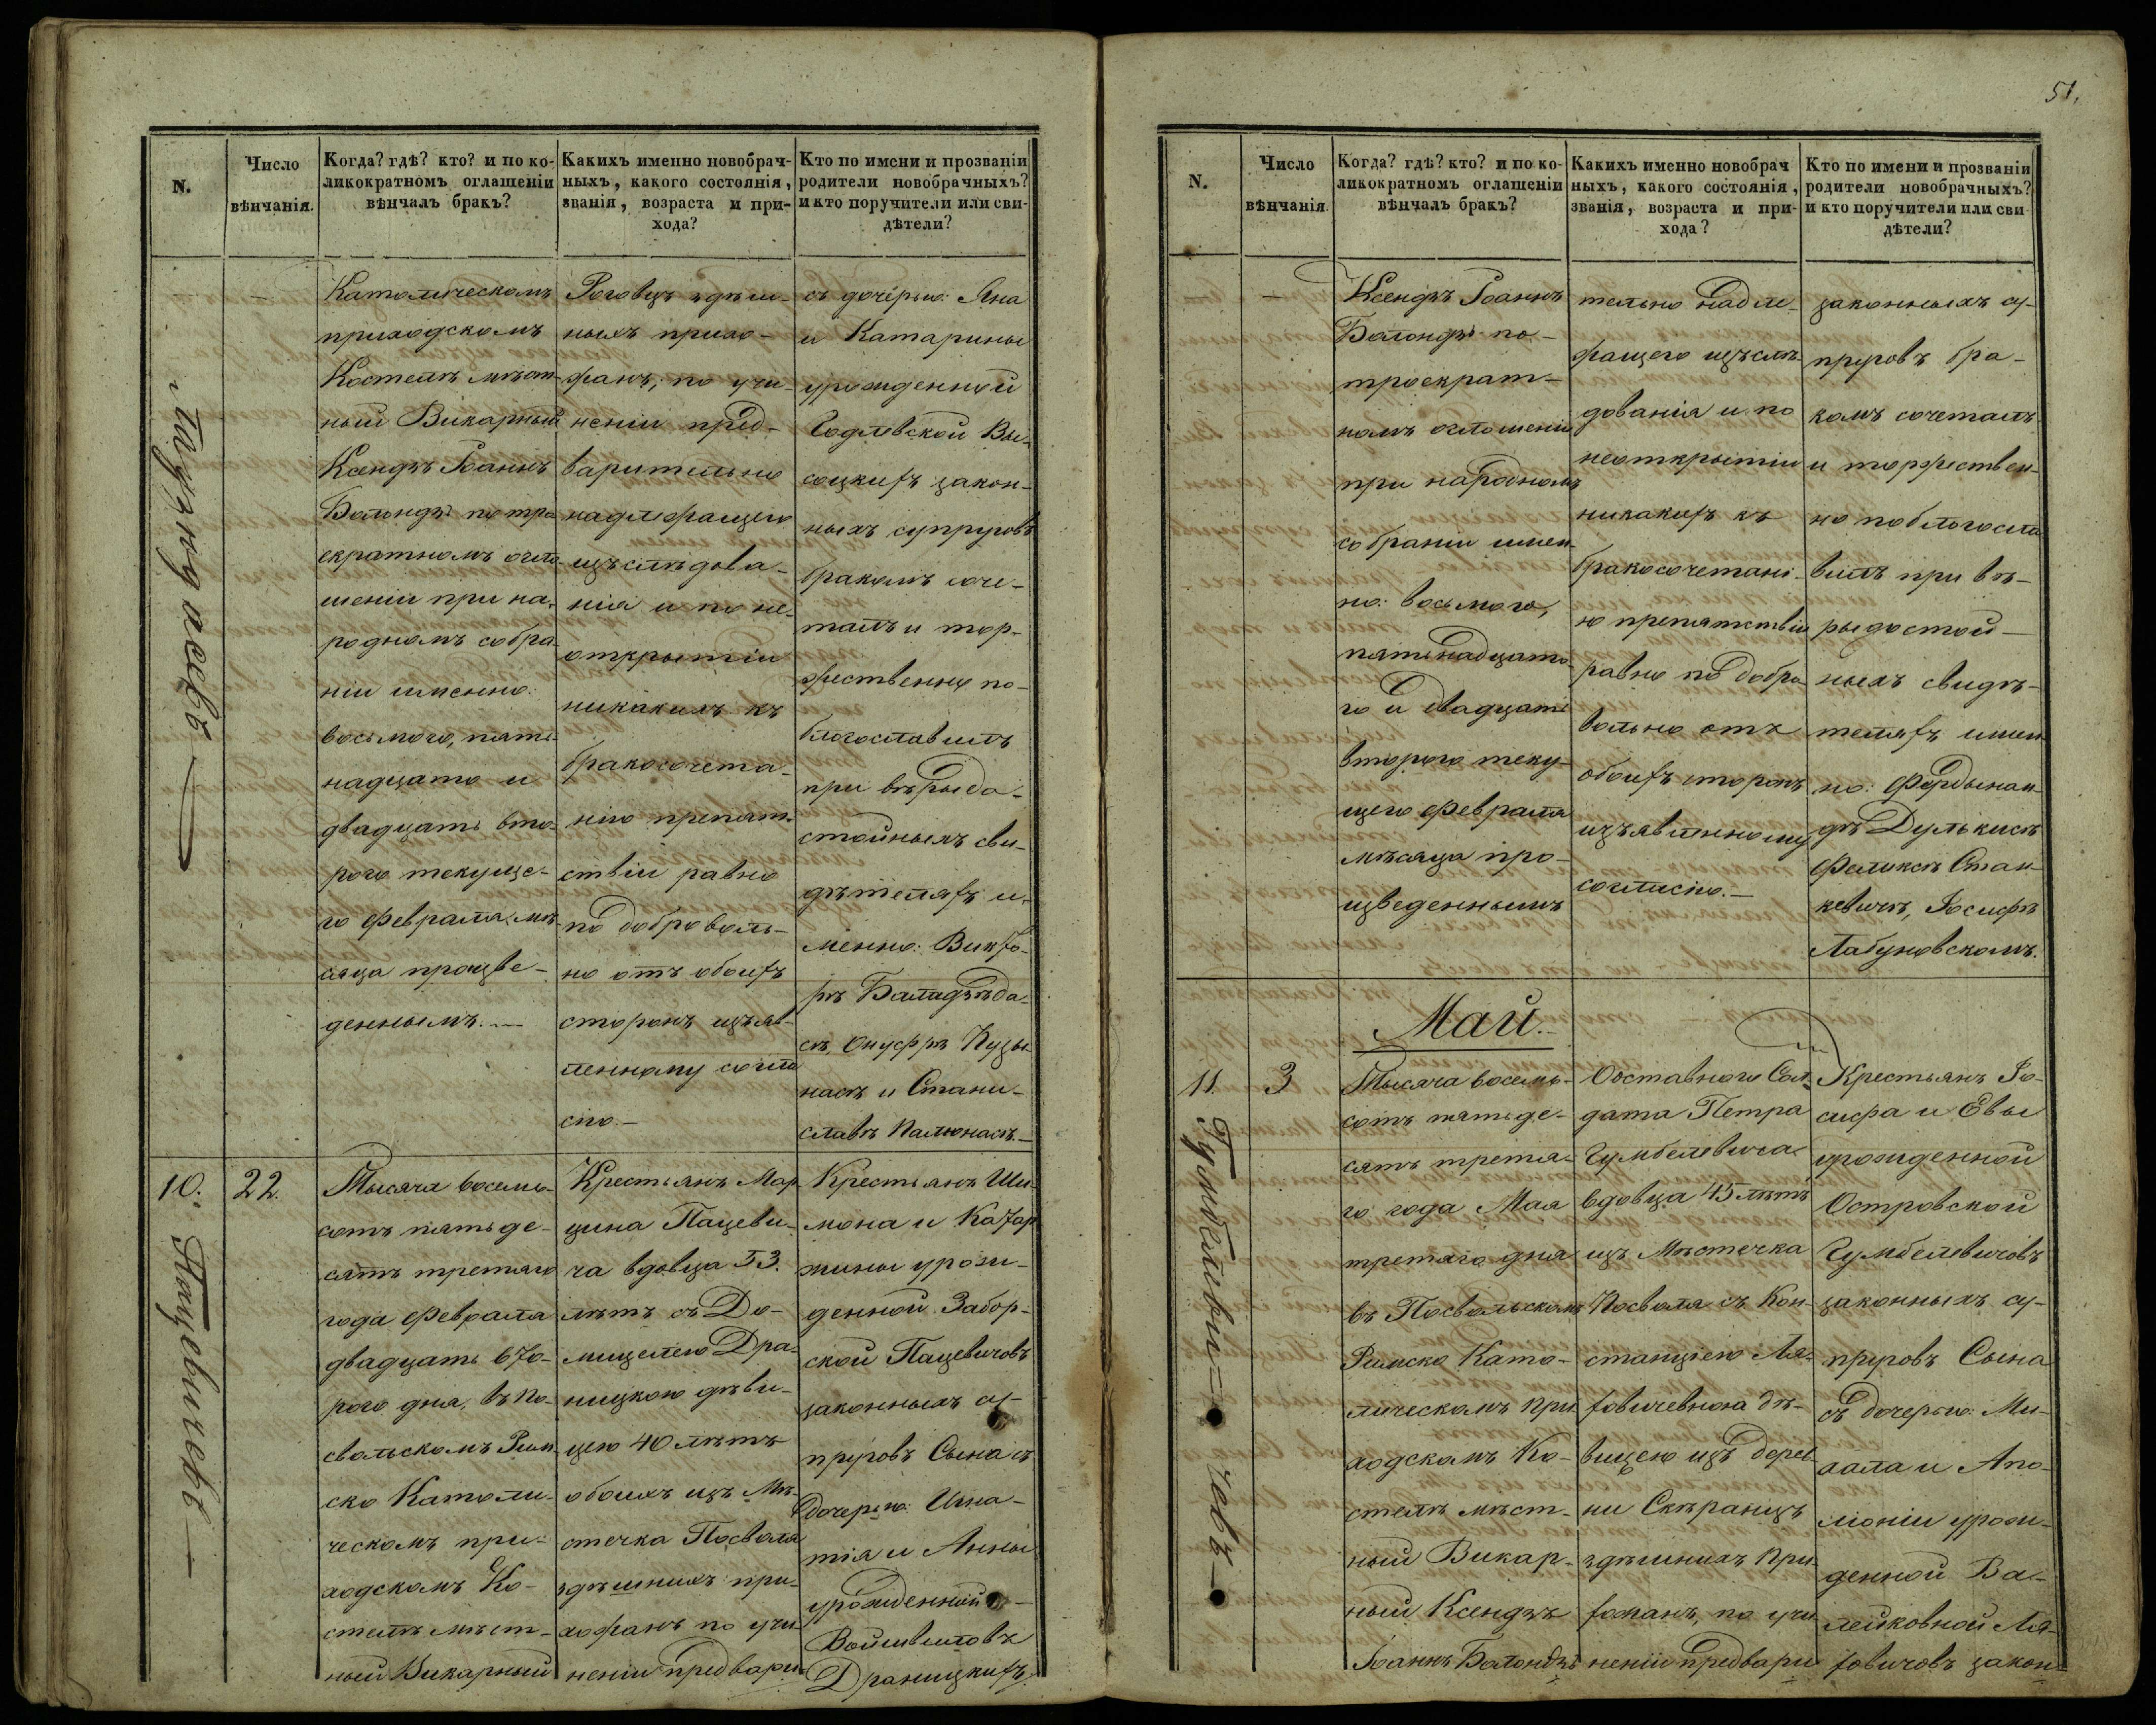 N.
Число
вѣнчанія.
Когда? гдѣ? кто? и по ко-
ликократномъ оглашеніи
вѣнчалъ бракъ?
Какихъ именно новобрач-
ныхъ, какого состоянія,
званія, возраста и при-
хода?
Кто по имени и прозваніи
родители новобрачныхъ?
и кто поручители или сви-
дѣтели?
Католическомъ
приходскомъ
Костелѣ мѣст-
ный Викарный
Ксендзъ Іоаннъ
Балондзь по тро
екратномъ огла
шеніи при на-
родномъ собра
ніи именно:
восьмого, пять-
надцато и
двадцать вто-
рого текуще-
го февраля мѣ-
сяца произве-
деннымъ.—
Роговцъ здѣш-
ныхъ прихо-
жанъ, по учи-
неніи пред-
варительно
надлежащего
изъслѣдова-
нія и по не-
открытіи
никакихъ къ
бракосочета-
нію препят-
ствіи равно
по доброволь-
но отъ обоихъ
сторонъ изъяв-
ленному согла
сію.—
съ дочерью: Яна
и Катарины
урожденной
Годлевской Вы-
соцкихъ закон-
ныхъ супруговъ
бракомъ соче-
талъ и тор-
жественно по-
благославилъ
при вѣрыдо-
стойныхъ сви-
дѣтеляхъ и-
менно: Викто-
рѣ
сѣ, Онуфрѣ Пузы
насѣ и Стани-
славѣ Палюнасѣ.—
10.
22.
Пацевичовъ —
Тысяча восемь-
сотъ пятьде-
сятъ третьяго
года февраля
двадцать вто-
рого дня, въ По-
свольскомъ Рим
ско Католи-
ческомъ при-
ходскомъ Ко-
стелѣ мѣст-
ный Викарный
Крестьянъ Мар
цина Пацеви-
ча вдовца 53.
лѣтъ съ До-
мицелею Дра-
ницкою дѣви-
цею 40 лѣтъ
обоихъ изъ Мѣ-
стечка Посволя
здѣшнихъ при-
хожанъ по учи-
неніи предвари-
Крестьянъ Ши-
мона и Катар
жины урож-
денной Забор-
ской Пацевичовъ
законныхъ су-
пруговъ Сына съ
дочерью: Игна-
тія и Анны
урожденной —
Войшвиловъ
Драницкихъ.
51.
N.
Число
вѣнчанія.
Когда? гдѣ? кто? и по ко-
ликократномъ оглашеніи
вѣнчалъ бракъ?
Какихъ именно новобрач
ныхъ, какого состоянія,
званія, возраста и при-
хода?
Кто по имени и прозваніи
родители новобрачныхъ?
и кто поручители или сви
дѣтели?
Ксендзъ Іоаннъ
Балондзь по-
троекрат-
номъ оглашеніи
при народномъ
собраніи имен-
но: восьмого,
пятьнадцато-
го и двадцать
второго теку-
щего февраля
мѣсяца про-
изведеннымъ
тельно надле-
жащего изъслѣ-
дованія и по
неоткрытіи
никакихъ къ
бракосочетані-
ю препятствіи
равно по добро
вольно отъ
обоихъ сторонъ
изъявленному
согласію.—
законныхъ су-
пруговъ бра-
комъ сочеталъ
и торжествен-
но поблагосла
вилъ при вѣ-
рыдостой-
ныхъ свидѣ-
теляхъ имен
но: Фердынан-
дѣ Дулькисѣ
Феликсѣ Стан-
кевичѣ, Іосифѣ
Лабуновскомъ.
Май.
11.
3
Гумбелеви= човъ —
Тысяча восемь-
сотъ пятьде-
сятъ третья-
го года Мая
третяго дня
въ Посвольскомъ
Римско Като-
лическомъ При
ходскомъ Ко-
стелѣ мѣст-
ный Викар-
ный Ксендзъ
Іоаннъ Балондзь
Отставного Сол
дата Петра
Гумбелевича
вдовца 45 лѣтъ
изъ Мѣстечка
Посволя съ Кон-
станціею Ля-
ховичевною дѣ-
вицею изъ дерев-
ни Скѣраицъ
здѣшнихъ При
хожанъ, по учи
неніи предвари
Крестьянъ Іо-
сифа и Евы
урожденной
Островской
Гумбелевичовъ
законныхъ су-
пруговъ Сына
съ дочерью: Ми-
хала и Апо-
лоніи урож-
денной Ва-
лейковной Ля-
ховичовъ закон=